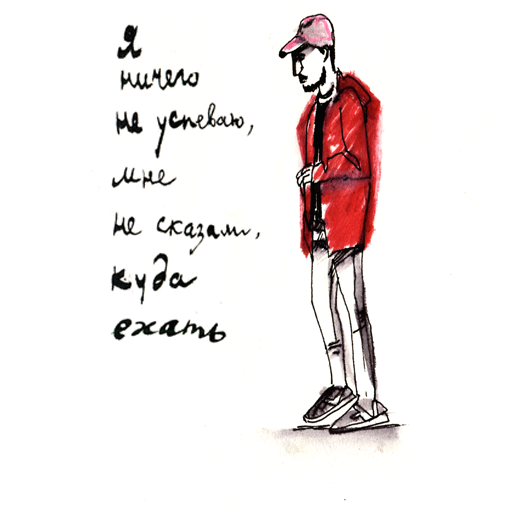 Я
ничего
не успеваю,
мне
не сказали,
куда
ехать